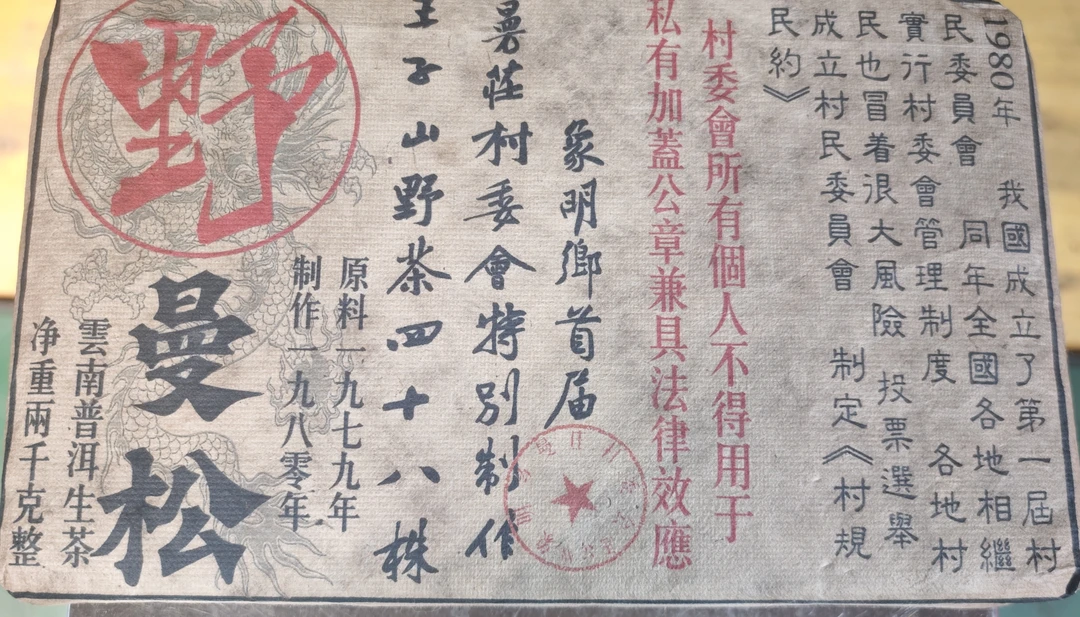 1980年 我國成立了第一屆村
民委員會 同年全國各地相繼
實行村委會管理制度 各地村
民也冒着很大風險 投票選舉
成立村民委員會 制定《村規
民約》
村委會所有個人不得用于
私有加蓋公章兼具法律效應
象明鄉首届
曼莊村委會特別制作
王子山野茶四十八株
原料一九七九年
制作一九八零年
野
曼松
雲南普洱生茶
净重兩千克整